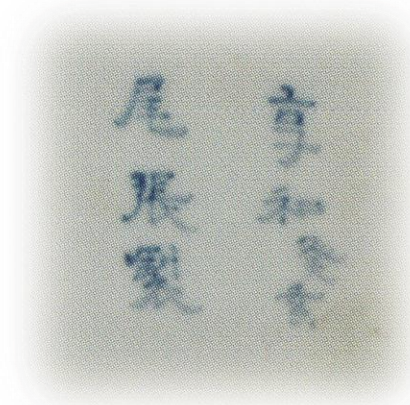 享和癸亥
尾張製